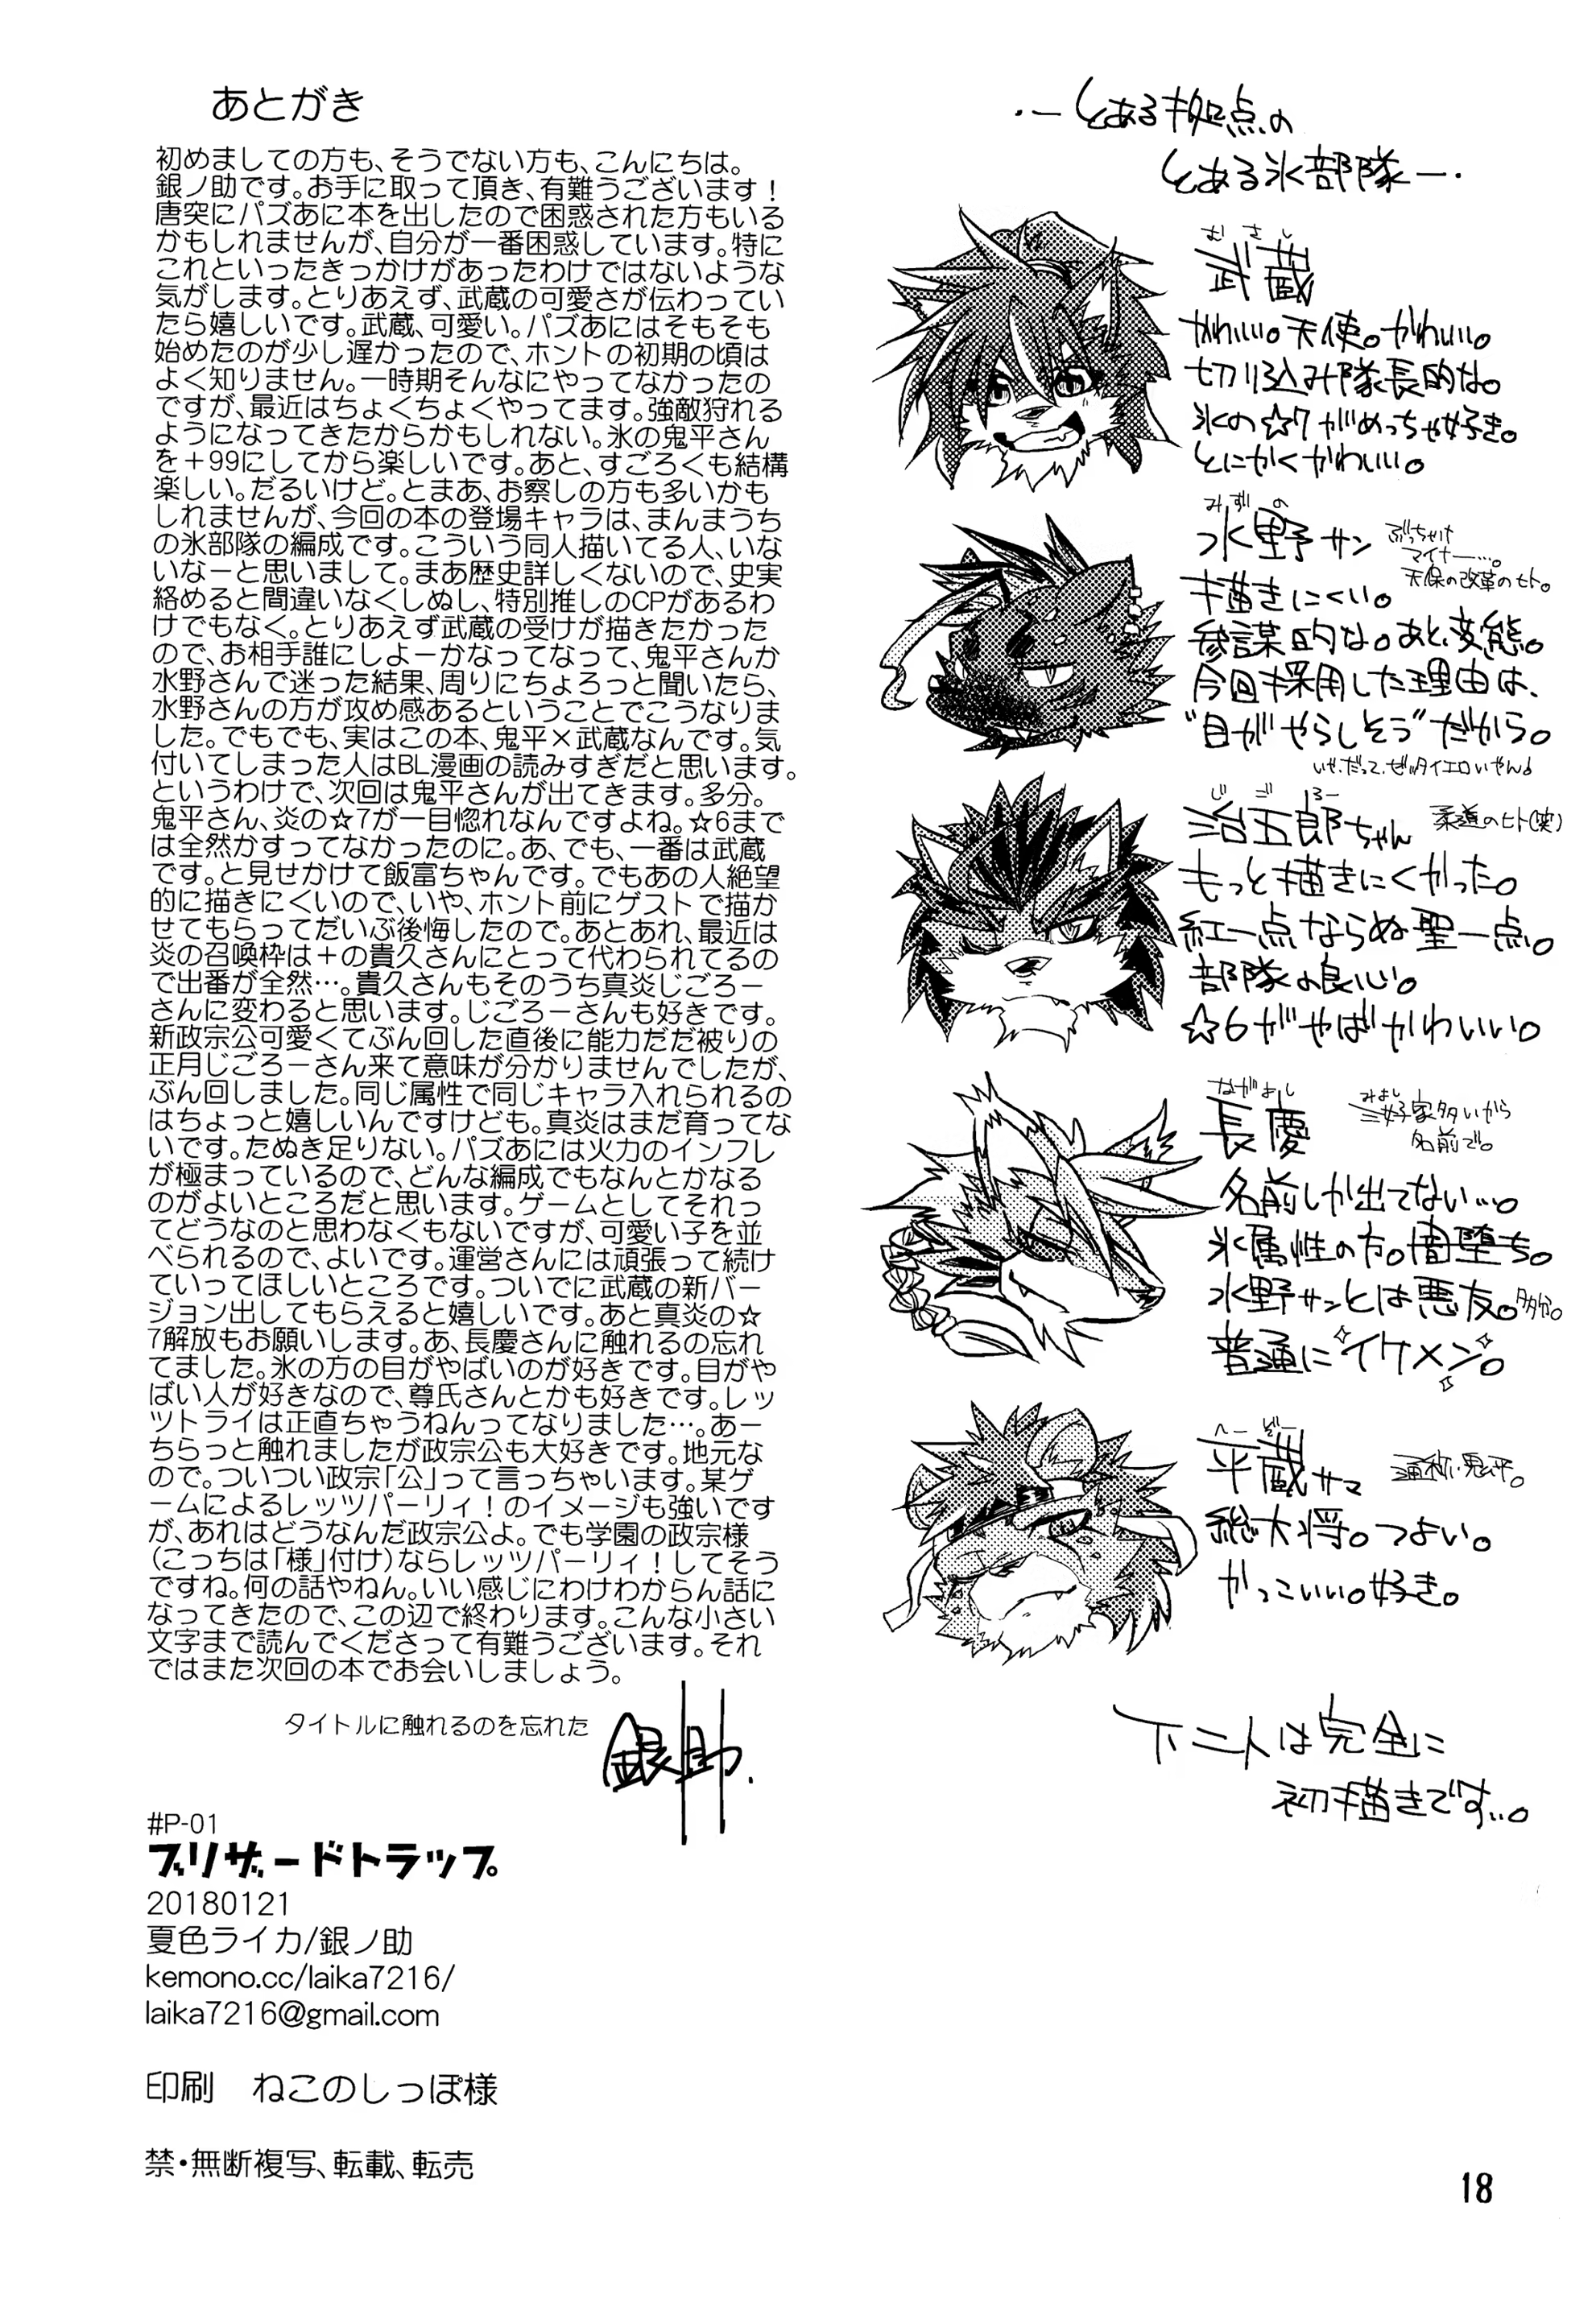 あとがき
初めましての方も、そうでない方も、こんにちは。
銀ノ助です。お手に取って頂き、有難うございます！
唐突にパズあに本を出したので困惑された方もいる
かもしれませんが、自分が一番困惑しています。特に
これといったきっかけがあったわけではないような
気がします。とりあえず、武蔵の可愛さが伝わってい
たら嬉しいです。武蔵、可愛い。パズあにはそもそも
始めたのが少し遅かったので、ホントの初期の頃は
よく知りません。一時期そんなにやってなかったの
ですが、最近はちょくちょくやってます。強敵狩れる
ようになってきたからかもしれない。氷の鬼平さん
を＋99にしてから楽しいです。あと、すごろくも結構
楽しい。だるいけど。とまあ、お察しの方も多いかも
しれませんが、今回の本の登場キャラは、まんまうち
の氷部隊の編成です。こういう同人描いてる人、いな
いなーと思いまして。まあ歴史詳しくないので、史実
絡めると間違いなくしぬし、特別推しのCPがあるわ
けでもなく。とりあえず武蔵の受けが描きたかった
ので、お相手誰にしよーかなってなって、鬼平さんか
水野さんで迷った結果、周りにちょろっと聞いたら、
水野さんの方が攻め感あるということでこうなりま
した。でもでも、実はこの本、鬼平×武蔵なんです。気
付いてしまった人はBL漫画の読みすぎだと思います。
というわけで、次回は鬼平さんが出てきます。多分。
鬼平さん、炎の☆7が一目惚れなんですよね。☆6まで
は全然かすってなかったのに。あ、でも、一番は武蔵
です。と見せかけて飯富ちゃんです。でもあの人絶望
的に描きにくいので、いや、ホント前にゲストで描か
せてもらってだいぶ後悔したので。あとあれ、最近は
炎の召喚枠は＋の貴久さんにとって代わられてるの
で出番が全然…。貴久さんもそのうち真炎じごろー
さんに変わると思います。じごろーさんも好きです。
新政宗公可愛くてぶん回した直後に能力だだ被りの
正月じごろーさん来て意味が分かりませんでしたが、
ぶん回しました。同じ属性で同じキャラ入れられるの
はちょっと嬉しいんですけども。真炎はまだ育ってな
いです。たぬき足りない。パズあには火力のインフレ
が極まっているので、どんな編成でもなんとかなる
のがよいところだと思います。ゲームとしてそれっ
てどうなのと思わなくもないですが、可愛い子を並
べられるので、よいです。運営さんには頑張って続け
ていってほしいところです。ついでに武蔵の新バー
ジョン出してもらえると嬉しいです。あと真炎の☆
7解放もお願いします。あ、長慶さんに触れるの忘れ
てました。氷の方の目がやばいのが好きです。目がや
ばい人が好きなので、尊氏さんとかも好きです。レッ
ツトライは正直ちゃうねんってなりました…。あー
ちらっと触れましたが政宗公も大好きです。地元な
ので。ついつい政宗「公」って言っちゃいます。某ゲ
ームによるレッツパーリィ！のイメージも強いです
が、あれはどうなんだ政宗公よ。でも学園の政宗様
（こっちは「様」付け）ならレッツパーリィ！してそう
ですね。何の話やねん。いい感じにわけわからん話に
なってきたので、この辺で終わります。こんな小さい
文字まで読んでくださって有難うございます。それ
ではまた次回の本でお会いしましょう。
タイトルに触れるのを忘れた
銀ノ助.
#P-01
ブリザードトラップ。
20180121
夏色ライカ/銀ノ助
kemono.cc/laika7216/
laika7216@gmail.com
印刷　ねこのしっぽ様
禁・無断複写、転載、転売
・―とある拠点の
とある氷部隊―・
むさし
武蔵
かわいい。天使。かわいい。
切り込み隊長的な。
氷の☆7がめっちゃ好き。
とにかくかわいい。
みずの
水野サン
ぶっちゃけ
マイナー…。
天保の改革のヒト。
描きにくい。
参謀的な。あと、変態。
今回採用した理由は、
"目がやらしそう"だから。
いや、だって、ゼッタイエロいやん♪
じごろー
治五郎ちゃん
柔道のヒト(笑)
もっと描きにくかった。
紅一点ならぬ聖一点。
部隊の良心。
☆6がやばかわいい。
ながよし
長慶
みよし
三好家多いから
名前で。
名前しか出てない…。
氷属性の方。闇堕ち。
水野サンとは悪友。多分。
普通にイケメン。
へーぞー
平蔵サマ
通称、鬼平。
総大将。つよい。
かっこいい。好き。
下二人は完全に
初描きです…。
18